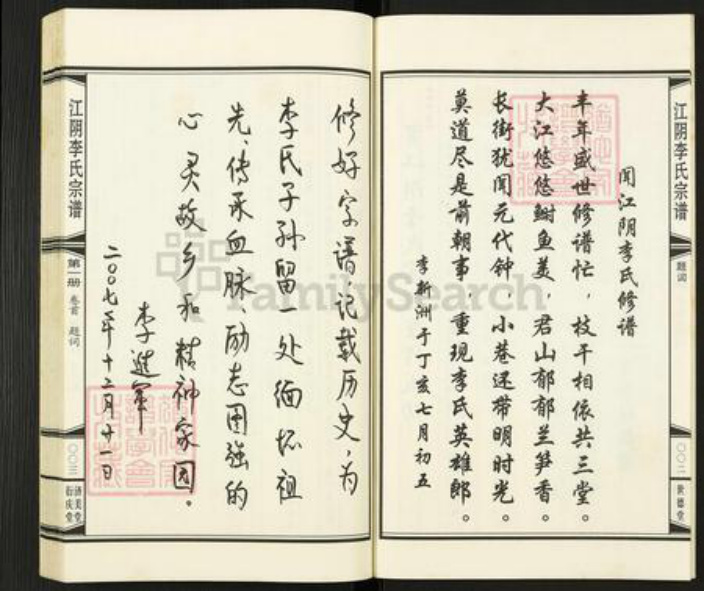 江阴李氏宗谱
题词
〇〇二
世德堂
闻江阴李氏修谱
丰年盛世修谱忙，枝干相依共三堂。
大江悠悠鲥鱼美，君山郁郁兰笋香。
长街犹闻元代钟，小巷还带明时光。
莫道尽是前朝事，重现李氏英雄郎。
李新洲于丁亥七月初五
修好字谱记载历史，为
李氏子孙留一处缅怀祖
先、传承血脉、励志图强的
心灵故乡和精神家园。
李进军
二〇〇七年十二月十一日
江阴李氏宗谱
第一册
卷首
题词
〇〇三
济美堂
衍庆堂
FamilySearch